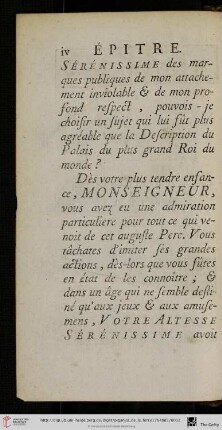 iv ÉPITRE.
SÉRÉNISSIME des mar-
ques publiques de mon attache-
ment inviolable & de mon pro-
fond respect, pouvois-je
choisir un sujet qui lui fût plus
agréable que la Description du
Palais du plus grand Roi du
monde ?
Dès votre plus tendre enfan-
ce, MONSEIGNEUR,
vous avez eu une admiration
particuliere pour tout ce qui ve-
noit de cet auguste Pere. Vous
tâchates d'imiter ses grandes
actions, dès-lors que vous fûtes
en état de les connoître ; &
dans un âge qui ne semble desti-
né qu'aux jeux & aux amuse-
mens, VOTRE ALTESSE
SÉRÉNISSIME avoit